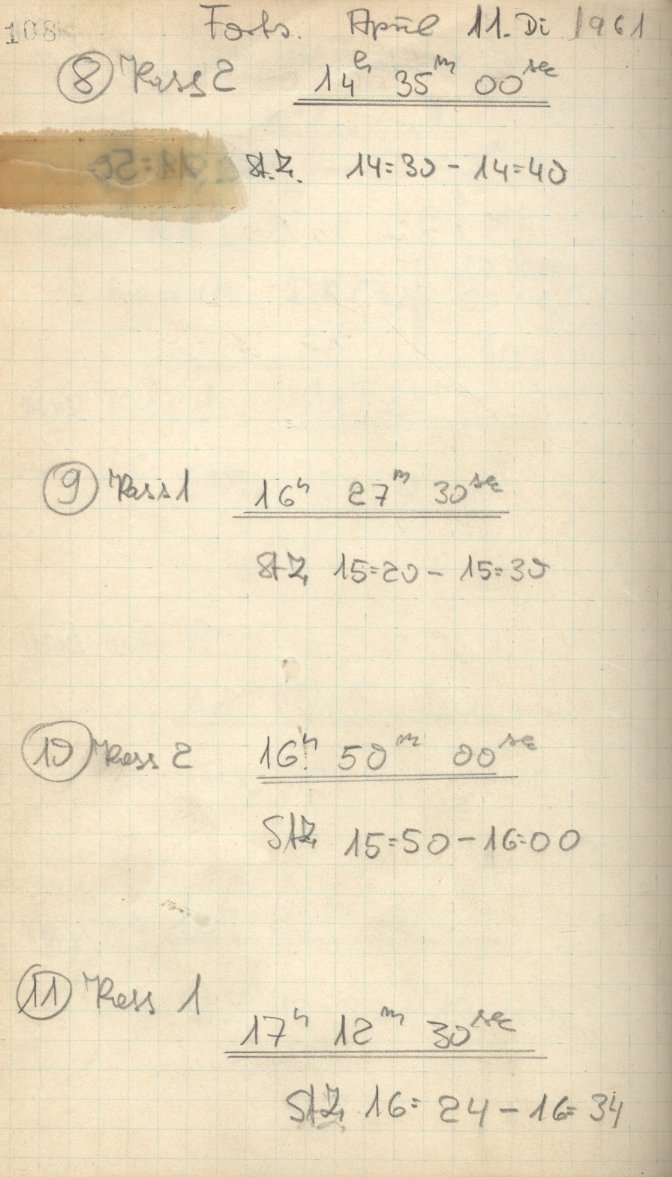 108
Forts. April 11. Di 1961
8 Kass 2 14h 35m 00sec
St.Z. 14=30 - 14=40
9 Kass 1 16h 27m 30sec
StZ 15=20 - 15=30
10 Kass 2 16h 50m 00sec
StZ 15=50 - 16=00
11 Kass 1
17h 12m 30sec
StZ 16=24 - 16=34